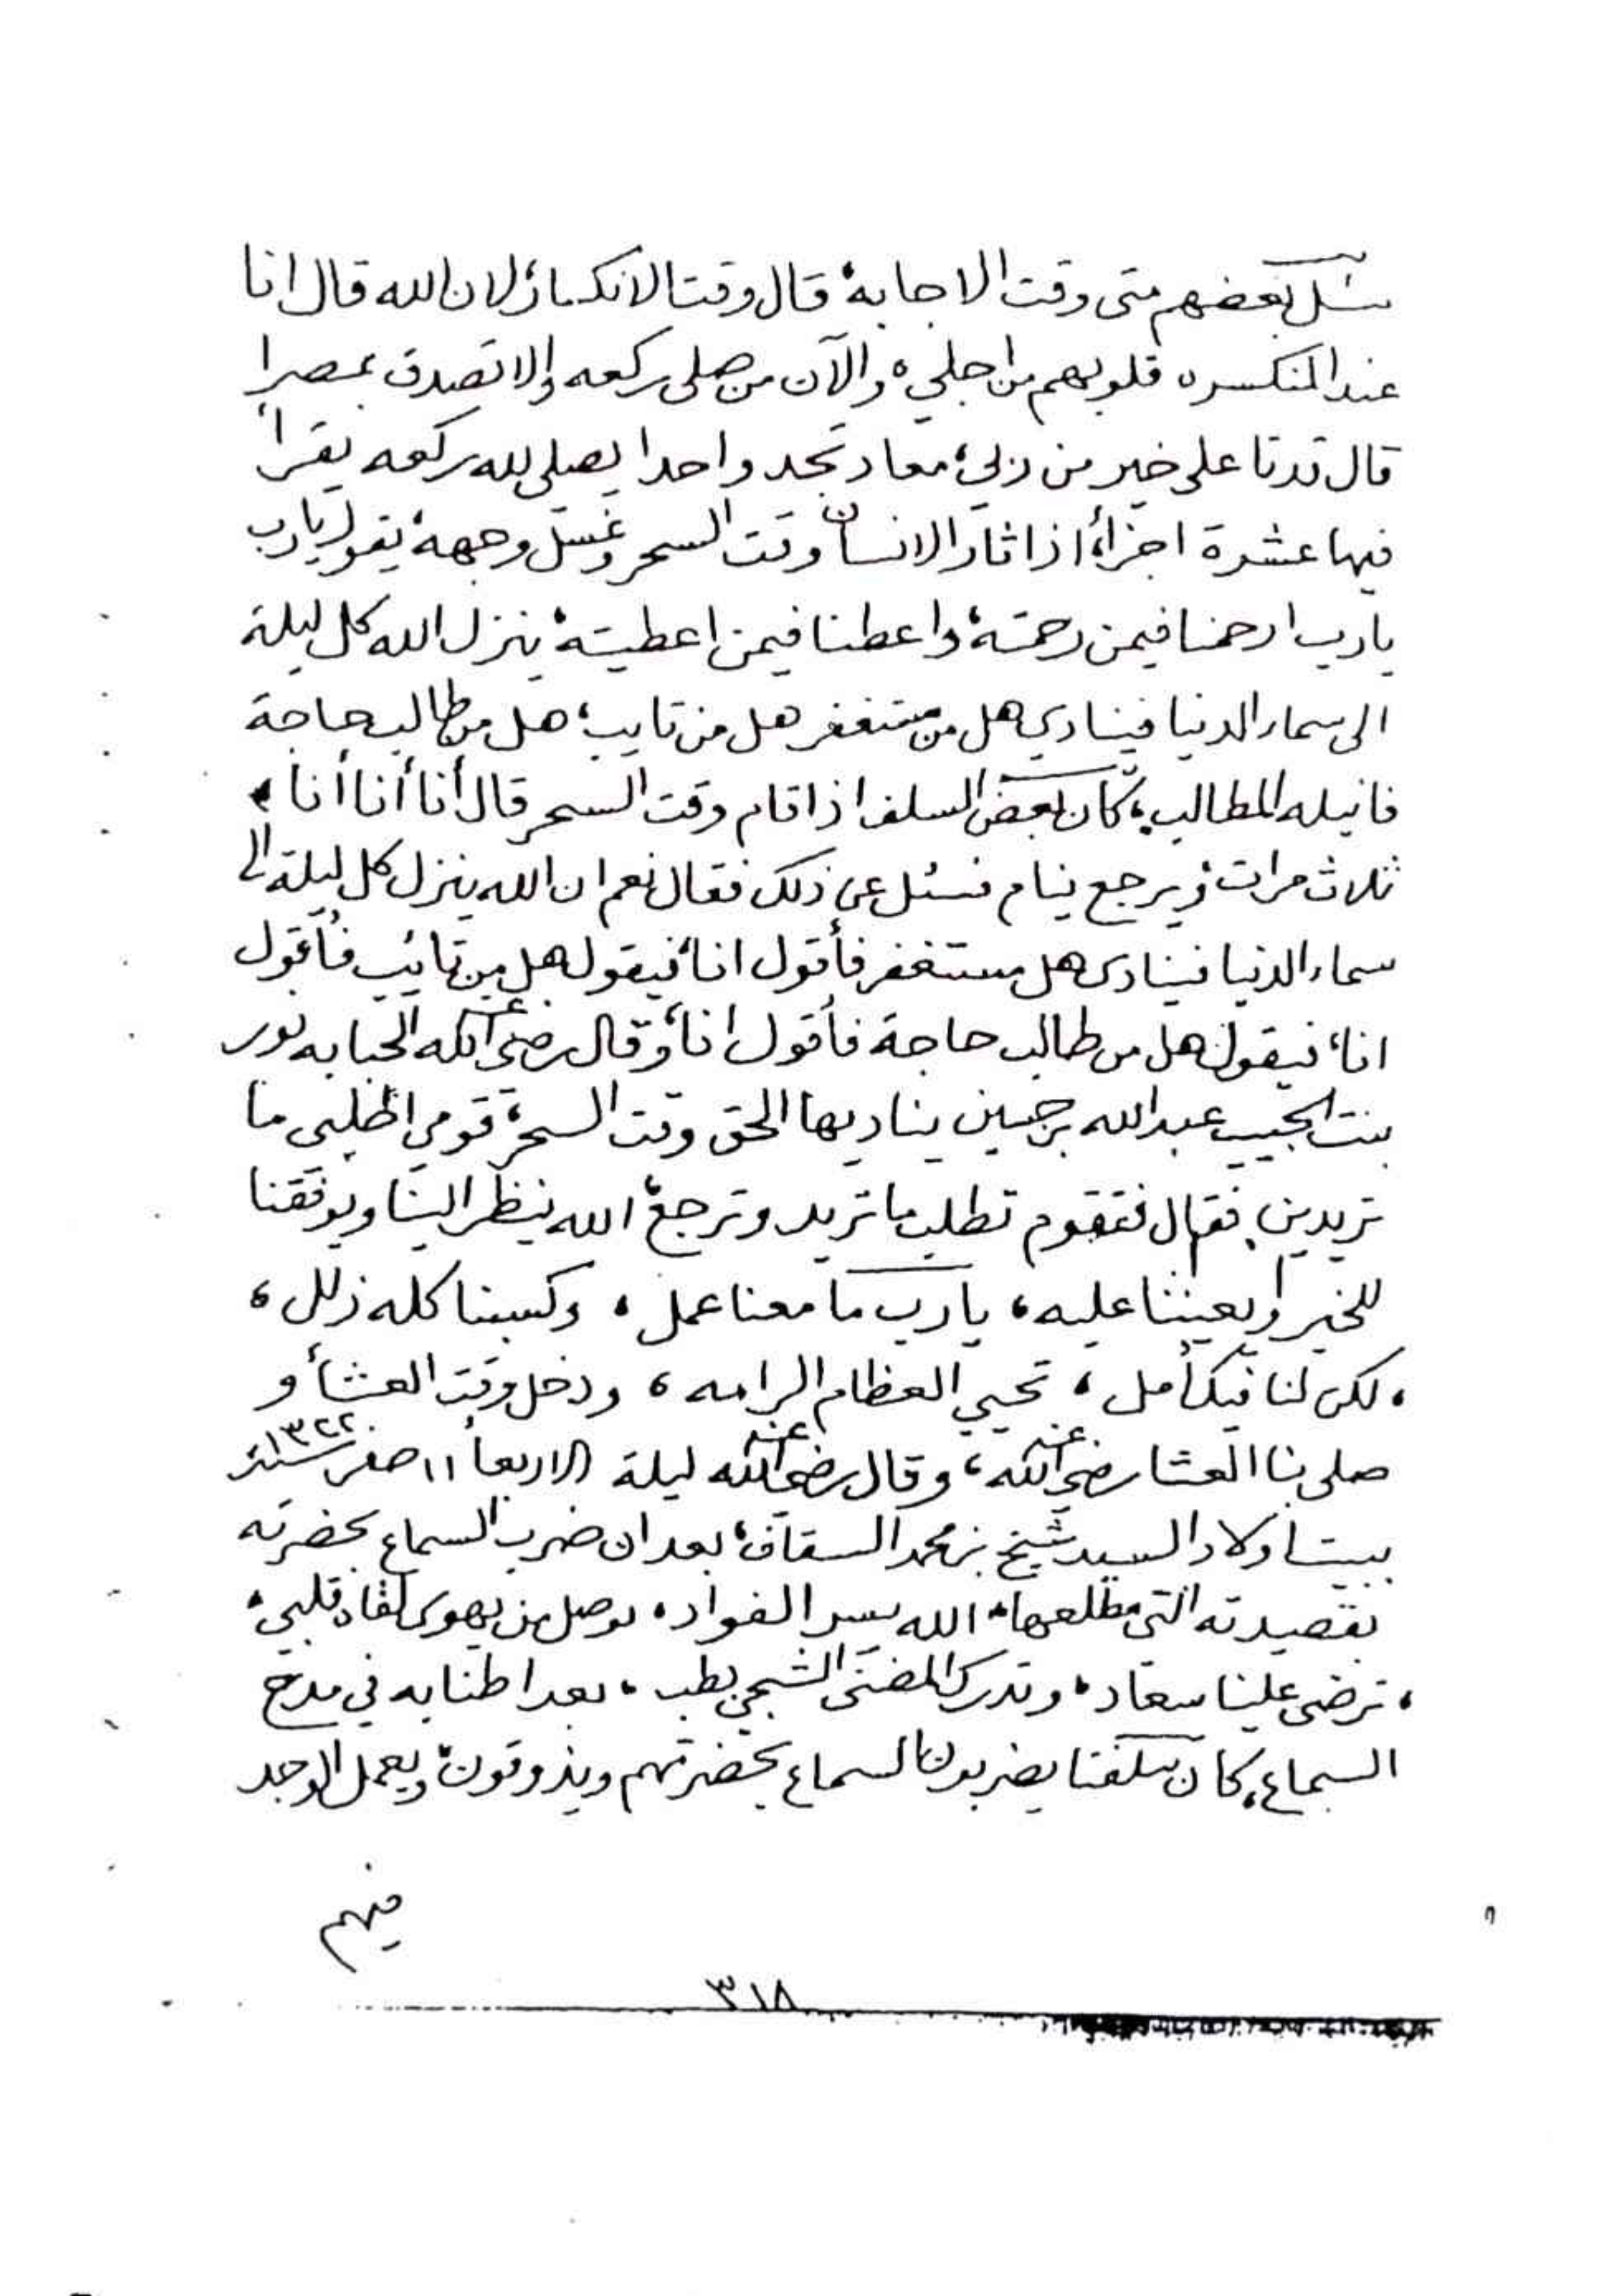 سئل بعضهم متى وقت الاجابة، قال وقت الانكسار، لان الله قال انا
عند المنكسره قلوبهم من اجلي، والآن من صلى ركعه والا تصدق بمصرا
قال قدنا على خير من ربي، معاد تجد واحدا يصلي لله ركعه يقرأ
فيها عشرة اجزأ، اذا ثار الانسان وقت السحر وغسل وجهه، يقول يارب
يارب ارحمنا فيمن رحمته، واعطنا فيمن اعطيته، ينزل الله كل ليلة
الى سماء الدنيا فينادي هل من مستغفر هل من تايب، هل من طالب حاجة
فانيله المطالب، كان بعض السلف اذا قام وقت السحر قال أنا أنا أنا،
ثلاث مرات ويرجع ينام فسئل عن ذلك فقال نعم ان الله ينزل كل ليلة الى
سماء الدنيا فينادى هل مستغفر فأقول انا، فيقول هل من تائب فأقول
انا، فيقول هل من طالب حاجة فأقول انا، وقال رضي الله عنه الحبابه نور
بنت الحبيب عبدالله بن حسين يناديها الحق وقت السحر، قومي اطلبي ما
تريدين، فقال فتقوم تطلب ما تريد وترجع، الله ينظر الينا ويوفقنا
للخير ويعيننا عليه، يارب ما معنا عمل، وكسبنا كله زلل،
، لكن لنا فيك أمل، تحيي العظام الرامه، ودخل وقت العشأ و
صلى بنا العشا رضي الله عنه، وقال رضي الله عنه ليلة الاربعأ ١١ صفر سنة ١٣٢٢
ببيت اولاد السيد شيخ بن محمد السقاف، بعد ان ضرب السماع بحضرته
بقصيدته التي مطلعها، الله يسر الفواد، بوصل من يهوى لقاه قلبي،
، ترضى علينا سعاد، وتدرك المضنى الشجي بطب، بعد اطنابه في مدح
السماع، كان سلفنا يضربون السماع بحضرتهم ويذوقون، ويعمل الوجد
فيهم
٣١٨